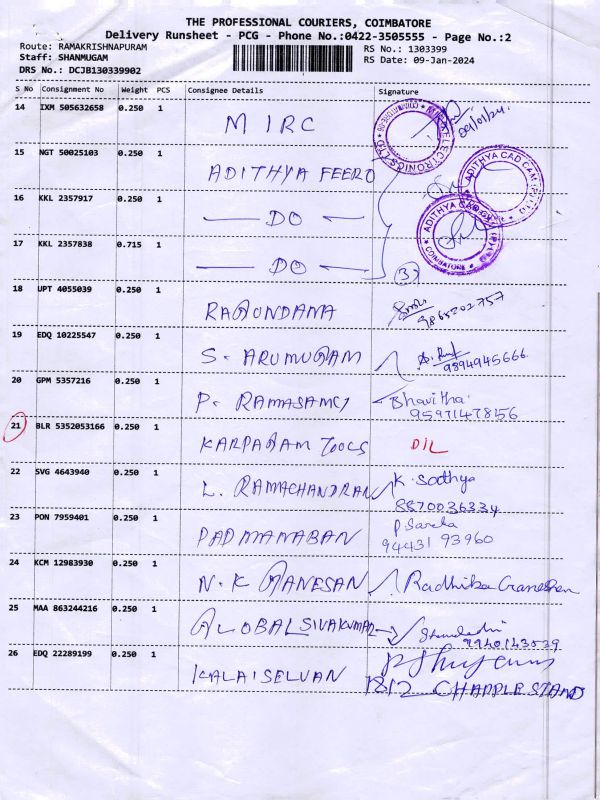 THE PROFESSIONAL COURIERS, COIMBATORE
Delivery Runsheet - PCG - Phone No.:0422-3505555 - Page No.:2
Route: RAMAKRISHNAPURAM RS No.: 1303399
Staff: SHANMUGAM RS Date: 09-Jan-2024
DRS No.: DCJB130339902
S No Consignment No Weight PCS Consignee Details Signature
14 IXM 505632658 0.250 1 MIRC 09/01/24
15 NGT 50025103 0.250 1 ADITHYA FEERO
16 KKL 2357917 0.250 1 DO
17 KKL 2357838 0.715 1 DO 3
ADITHYA CAD CAM
ADITHYA CAD CAM
COIMBATORE
18 UPT 4055039 0.250 1 RAGUNDAMA 9865202757
19 EDQ 10225547 0.250 1 S. ARUMUGAM 9894945666
20 GPM 5357216 0.250 1 P. RAMASAMY Bhavitha
95971478156
21 BLR 5352053166 0.250 1 KARPAGAM TOOLS DIL
22 SVG 4643940 0.250 1 L. RAMACHANDRAN K. Sodhya
8870036334
23 PON 7959401 0.250 1 PADMANABAN P Sarela
94431 93960
24 KCM 12983930 0.250 1 N. K GANESAN Radhika Ganeshan
25 MAA 863244216 0.250 1 GLOBAL SIVAKUMAR 9940143539
26 EDQ 22289199 0.250 1 KALAISELVAN
1812 CHAPPLE STAND